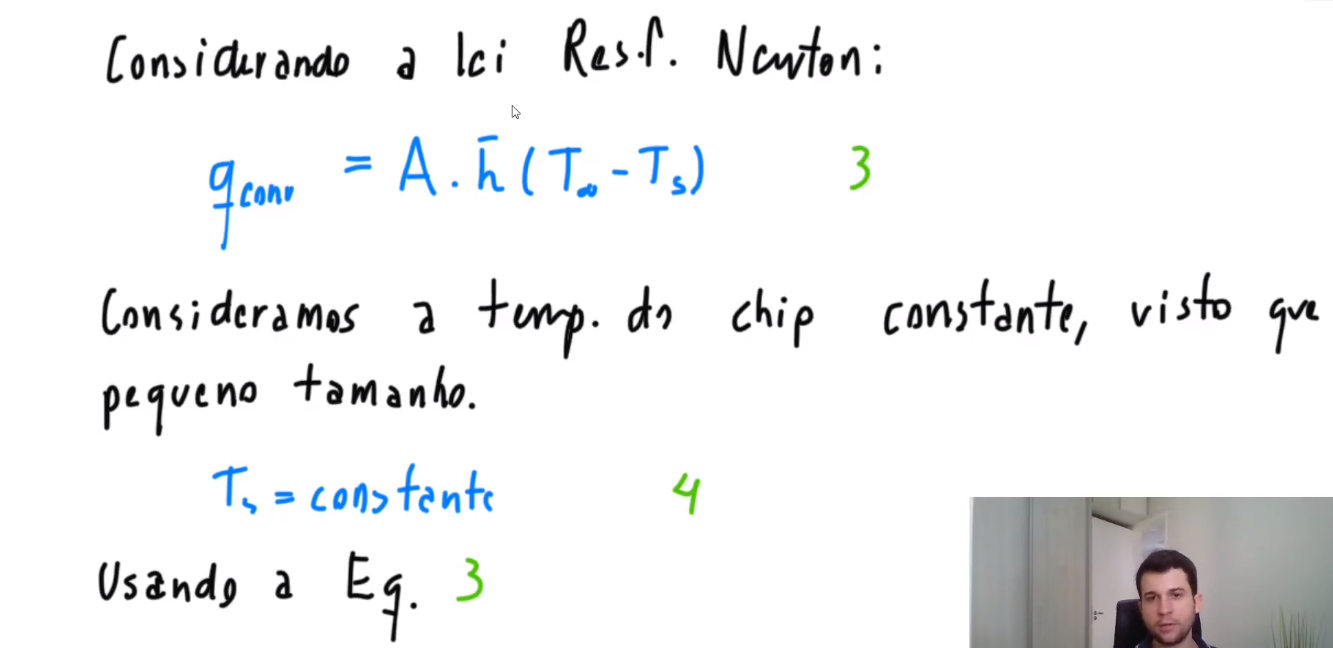 Considerando a lei Resf. Newton:
q conv = A . h̄ ( T∞ - Ts ) 3
Consideramos a temp. do chip constante, visto que
pequeno tamanho.
Ts = constante 4
Usando a Eq. 3